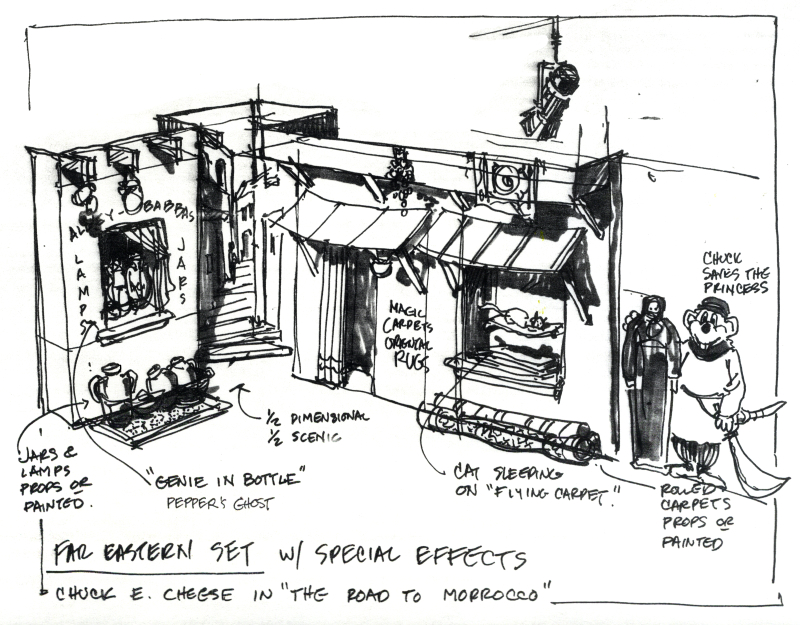 ALEY-BABBAS
LAMPS
JARS
MAGIC
CARPETS
ORIENTAL
RUGS
CHUCK
SAVES THE
PRINCESS
1/2 DIMENSIONAL
1/2 SCENIC
JARS &
LAMPS
PROPS OR
PAINTED.
"GENIE IN BOTTLE"
PEPPER'S GHOST
CAT SLEEPING
ON "FLYING CARPET."
ROLLED
CARPETS
PROPS OR
PAINTED
FAR EASTERN SET W/ SPECIAL EFFECTS
CHUCK E. CHEESE IN "THE ROAD TO MORROCCO"